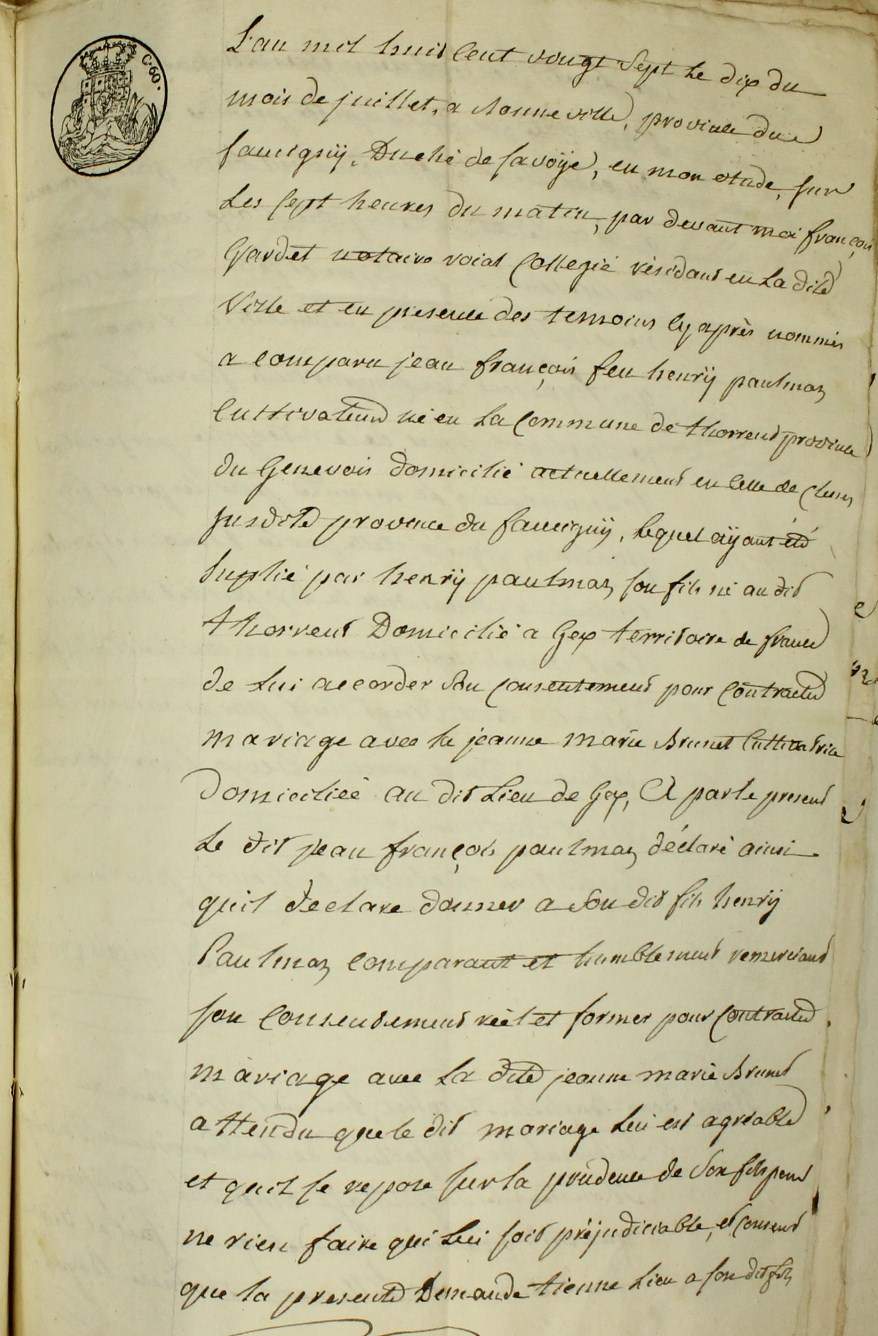 C. 60.
L'an mil huit cent vingt sept le dix du
mois de juillet, a Bonneville, province du
faucigny, Duché de savoÿe, en mon etude, sur
les sept heures du matin, par devant moi françois
Gardet notaire roial collegié résidant en la dite
Ville et en presence des temoins cy après nommés
a comparu jean françois feu henrÿ paulmaz
cultivateur né en la commune de thorrens province
du Genevois domicilié actuellement en celle de Cluses
susdite province du faucigny, lequel aÿant été
suplié par henrÿ paulmaz son fils né au dit
thorrens Domicilié a Gex territoire de france
de lui accorder son consentement pour contracter
mariage avec la jeanne marie Brunet cultivatrice
domiciliée au dit lieu de Gex, Et par le present
le dit jean françois paulmaz déclaré ainsi
qu'il declare donner a son dit fils henrÿ
Paulmaz comparant et humblement remerciant
son consentement réel et formel pour contracter
mariage avec la dite jeanne marie Brunet
attendu que le dit mariage lui est agréable
et quil se repose sur la prudence de son fils pour
ne rien faire qui lui soit préjudiciable, et consent
que la presente Demande tienne lieu a son dit fils